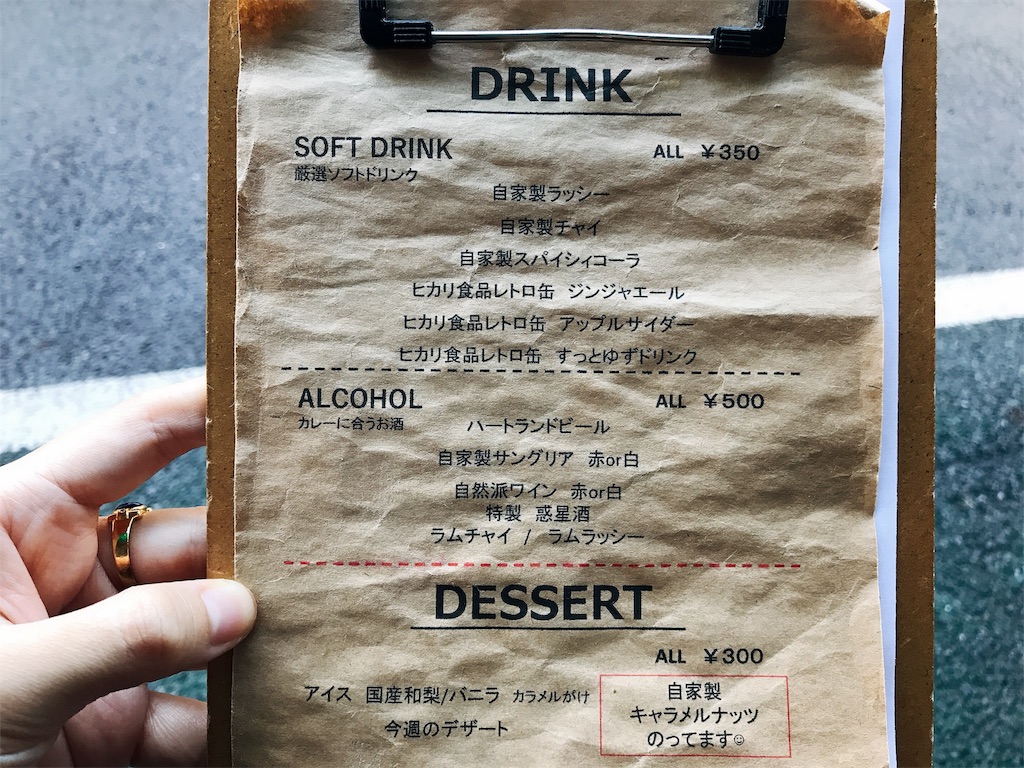 DRINK
SOFT DRINK ALL ¥350
厳選ソフトドリンク
自家製ラッシー
自家製チャイ
自家製スパイシィコーラ
ヒカリ食品レトロ缶 ジンジャエール
ヒカリ食品レトロ缶 アップルサイダー
ヒカリ食品レトロ缶 すっとゆずドリンク
ALCOHOL ALL ¥500
カレーに合うお酒
ハートランドビール
自家製サングリア 赤or白
自然派ワイン 赤or白
特製 惑星酒
ラムチャイ / ラムラッシー
DESSERT
ALL ¥300
アイス 国産和梨/バニラ カラメルがけ
今週のデザート
自家製
キャラメルナッツ
のってます☺